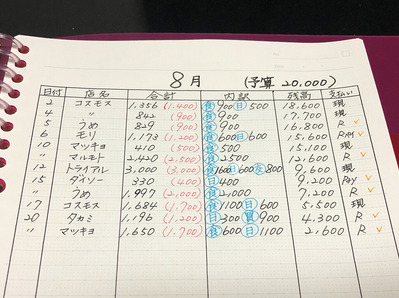 8月 (予算 20,000)
日付 店名 合計 内訳 残高 支払い
2 コスモス 1,356 (1,400) 食900 日500 18,600 現
4 〃 842 (900) 食900 17,700 現
5 うめ 829 (900) 食900 16,800 R ✓
6 モリ 1,173 (1,200) 食600 日600 15,600 Pay ✓
10 マツキヨ 410 (500) 食500 15,100 現
〃 マルモト 2,420 (2,500) 食2500 12,600 R ✓
12 トライアル 3,000 (3,000) 食1600 日600 800 9,600 現
15 ダイソー 330 (400) 日400 9,200 Pay ✓
〃 うめ 1,997 (2,000) 食2,000 7,200 R ✓
17 コスモス 1,684 (1,700) 食1100 日600 5,500 現
20 タカミ 1,196 (1,200) 日300 食900 4,300 R ✓
〃 マツキヨ 1,650 (1,700) 食600 日1100 2,600 R ✓